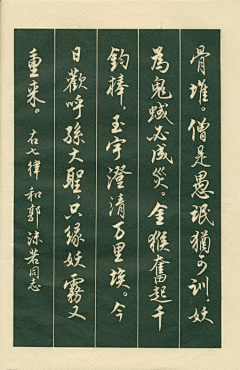 骨堆。僧是愚氓猶可訓，妖
為鬼蜮必成災。金猴奮起千
鈞棒，玉宇澄清万里埃。今
日歡呼孫大聖，只緣妖霧又
重来。 右七律 和郭沫若同志